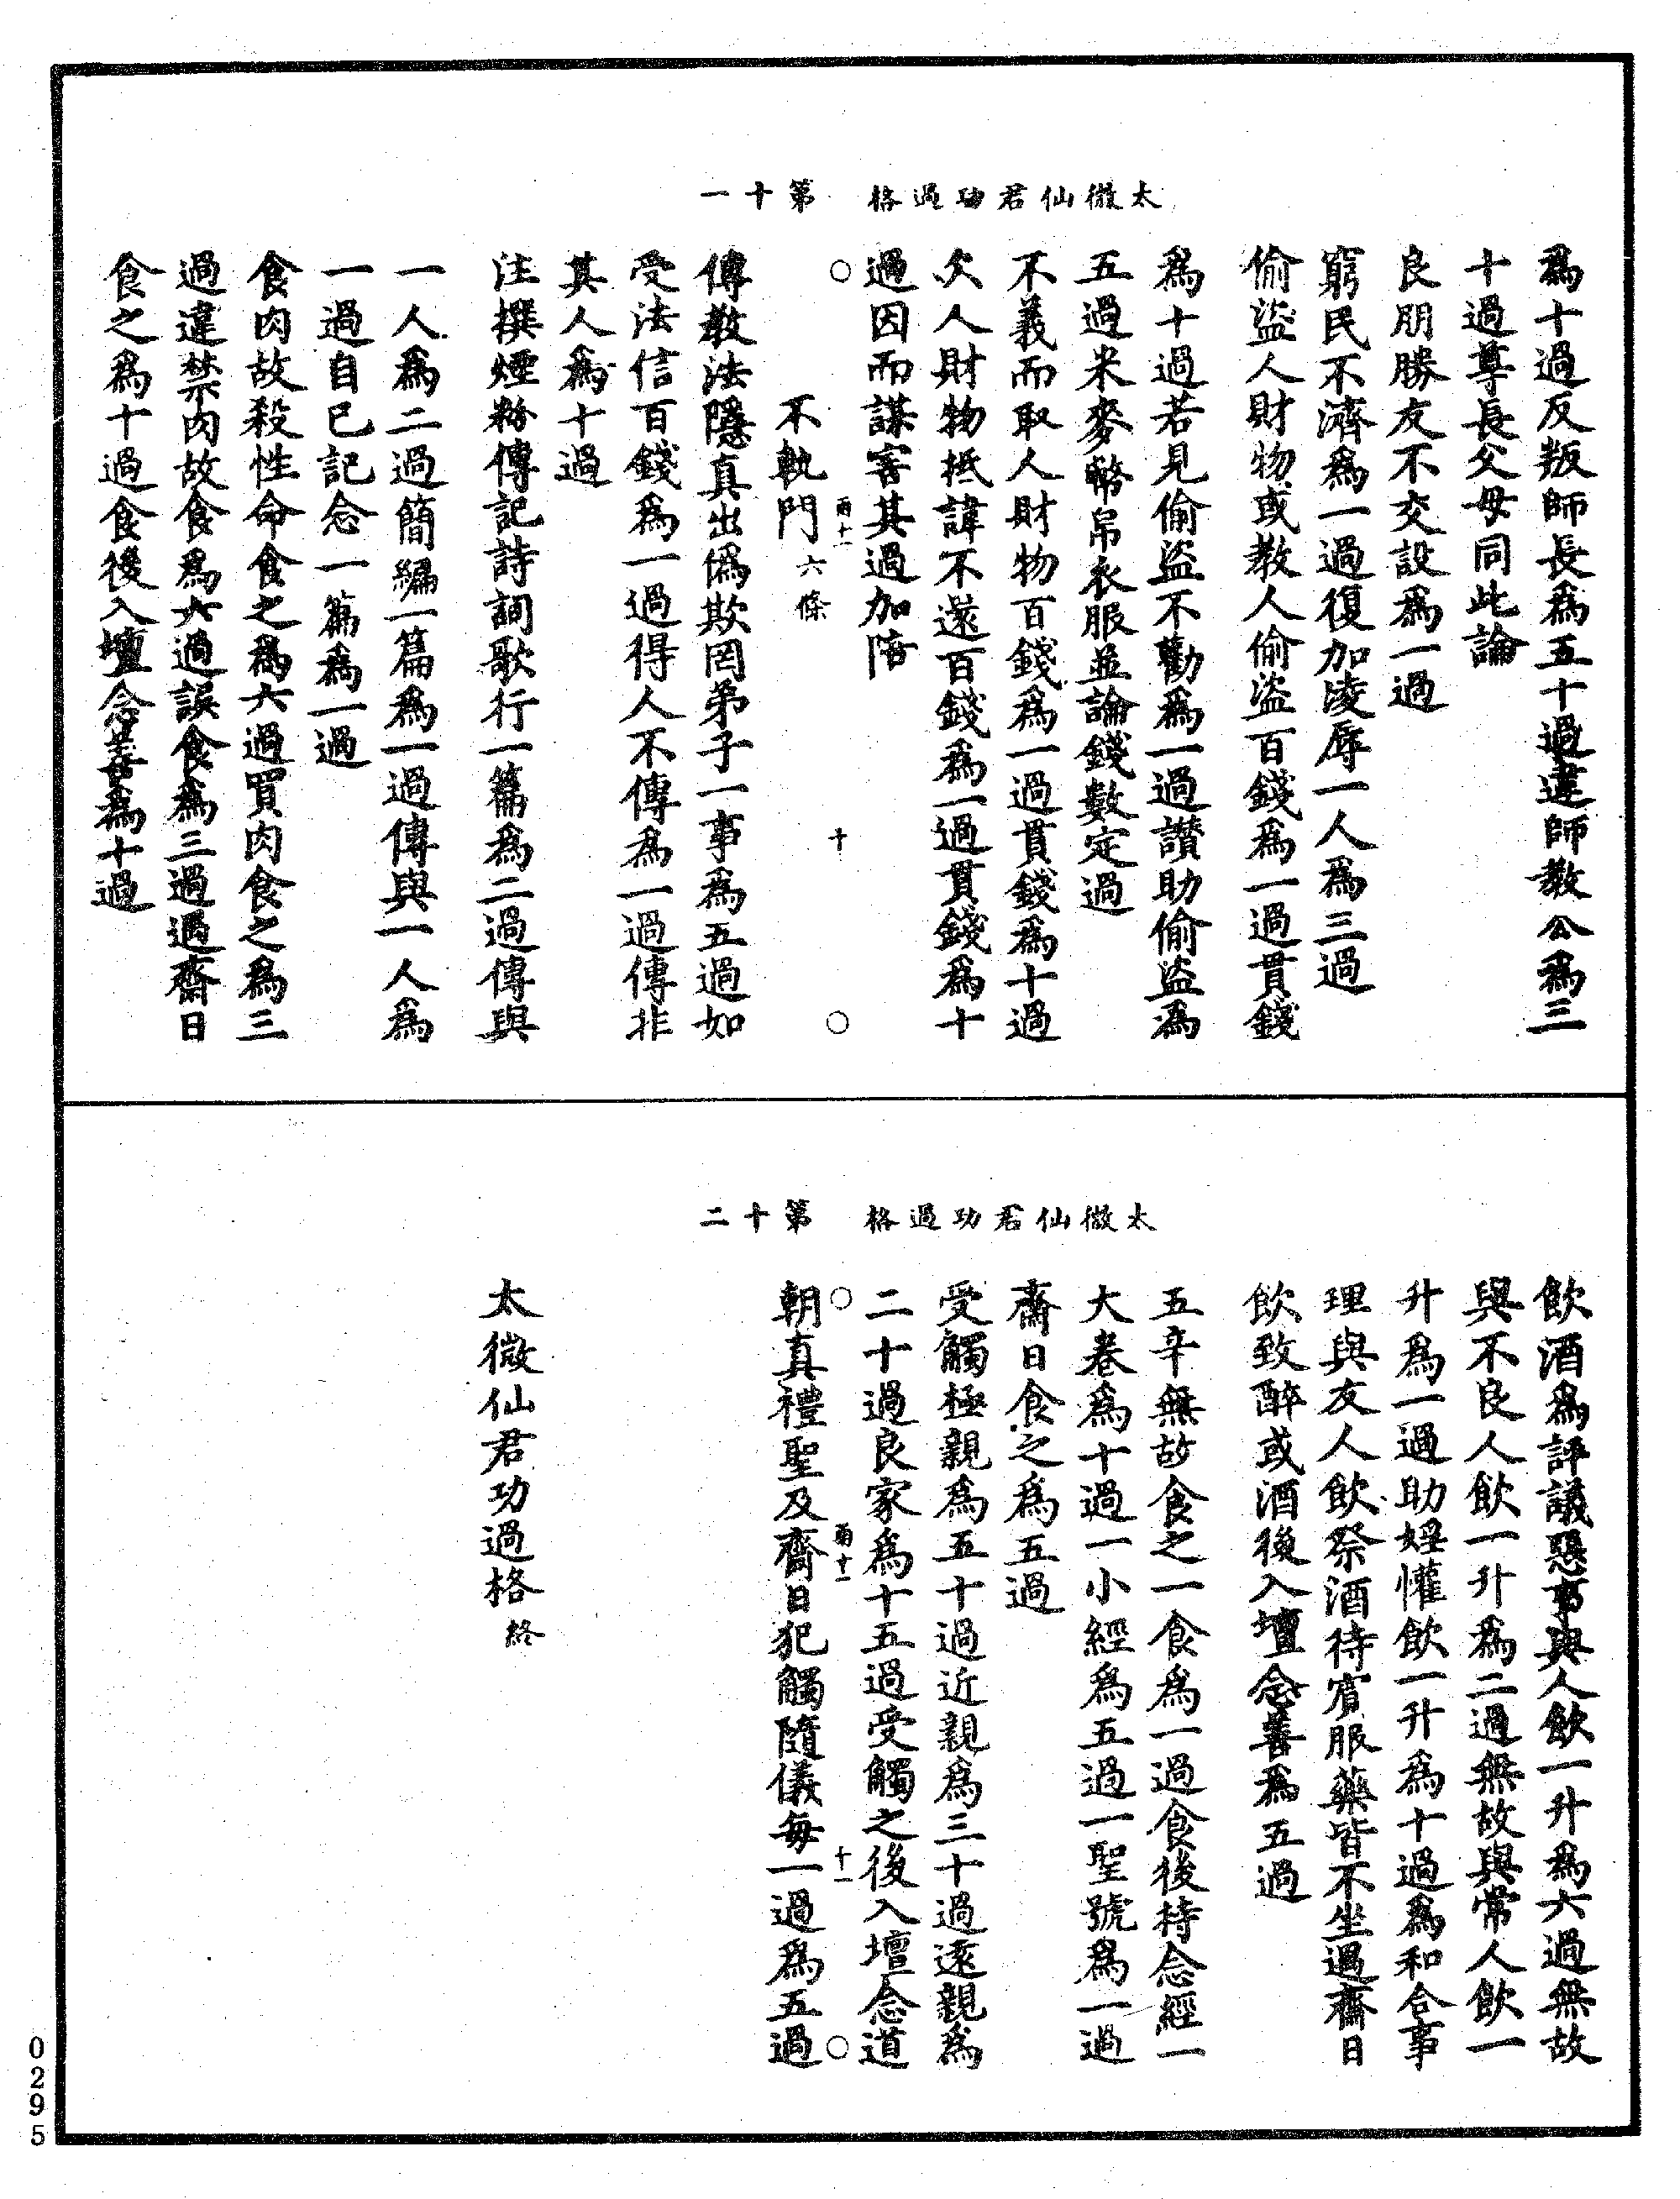 太微仙君功過格　第十一
為十過反叛師長為五十過違師教公為三
十過尊長父母同此論
良朋勝友不交設為一過
窮民不濟為一過復加凌辱一人為三過
偷盜人財物或教人偷盜百錢為一過貫錢
為十過若見偷盜不勸為一過讚助偷盜為
五過米麥幣帛衣服並論錢數定過
不義而取人財物百錢為一過貫錢為十過
欠人財物抵諱不還百錢為一過貫錢為十
過因而謀害其過加陪
○　雨十一　十　○
不軌門六條
傳教法隱真出偽欺罔弟子一事為五過如
受法信百錢為一過得人不傳為一過傳非
其人為十過
注撰煙粉傳記詩詞歌行一篇為二過傳與
一人為二過簡編一篇為一過傳與一人為
一過自己記念一篇為一過
食肉故殺性命食之為六過買肉食之為三
過違禁肉故食為六過誤食為三過遇齋日
食之為十過食後入壇念善為十過
太微仙君功過格　第十二
飲酒為評議惡事與人飲一升為六過無故
與不良人飲一升為二過無故與常人飲一
升為一過助婬懽飲一升為十過為和合事
理與友人飲祭酒待賓服藥皆不坐過齋日
飲致醉或酒後入壇念善為五過
五辛無故食之一食為一過食後持念經一
大卷為十過一小經為五過一聖號為一過
齋日食之為五過
受觸極親為五十過近親為三十過遠親為
二十過良家為十五過受觸之後入壇念道
○　雨十一　十一　○
朝真禮聖及齋日犯觸隨儀每一過為五過
太微仙君功過格終
0295